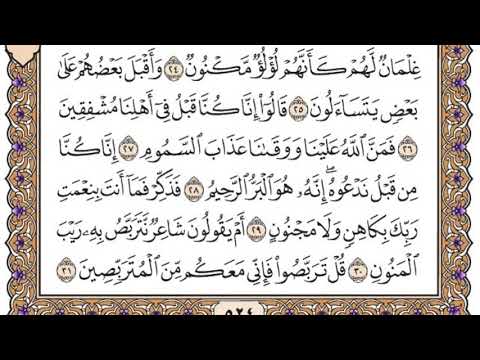 غِلْمَانٌ لَّهُمْ كَأَنَّهُمْ لُؤْلُؤٌ مَّكْنُونٌ ٢٤ وَأَقْبَلَ بَعْضُهُمْ عَلَىٰ
بَعْضٍ يَتَسَاءَلُونَ ٢٥ قَالُوٓاْ إِنَّا كُنَّا قَبْلُ فِىٓ أَهْلِنَا مُشْفِقِينَ
٢٦ فَمَنَّ ٱللَّهُ عَلَيْنَا وَوَقَىٰنَا عَذَابَ ٱلسَّمُومِ ٢٧ إِنَّا كُنَّا
مِن قَبْلُ نَدْعُوهُ ۖ إِنَّهُۥ هُوَ ٱلْبَرُّ ٱلرَّحِيمُ ٢٨ فَذَكِّرْ فَمَآ أَنتَ بِنِعْمَتِ
رَبِّكَ بِكَاهِنٍ وَلَا مَجْنُونٍ ٢٩ أَمْ يَقُولُونَ شَاعِرٌ نَّتَرَبَّصُ بِهِۦ رَيْبَ
ٱلْمَنُونِ ٣٠ قُلْ تَرَبَّصُواْ فَإِنِّى مَعَكُم مِّنَ ٱلْمُتَرَبِّصِينَ ٣١
٥٢٤